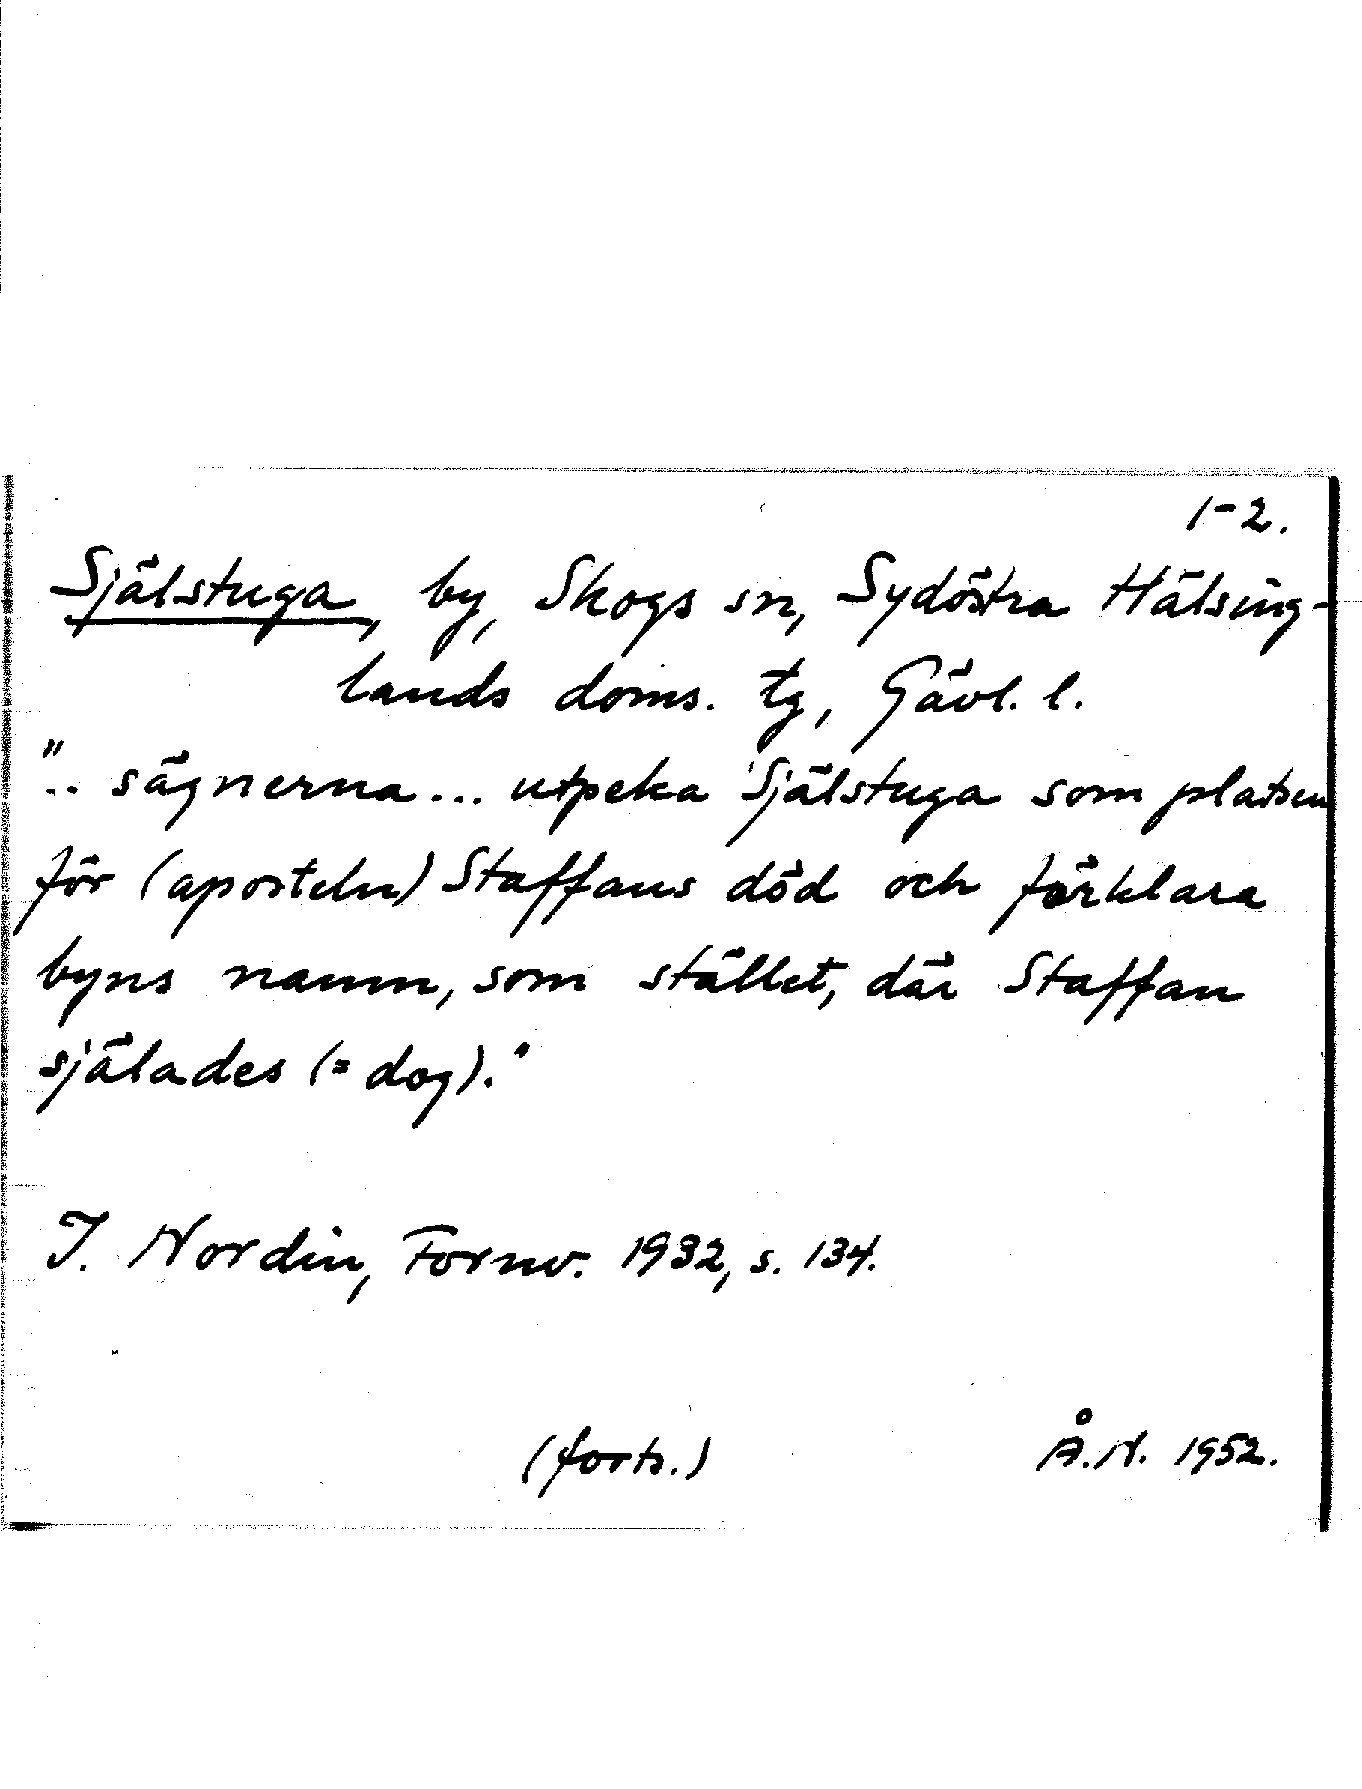 1-2.
Själstuga, by, Skogs sn, Sydöstra Hälsing-
lands doms. tg, Gävl. l.
".. sägnerna... utpeka Själstuga som platsen
för (aposteln) Staffans död och förklara
byns namn, som stället, där Staffan
själades (= dog)."
J. Nordin, Fornv. 1932, s. 134.
(forts.)
Å.N. 1952.